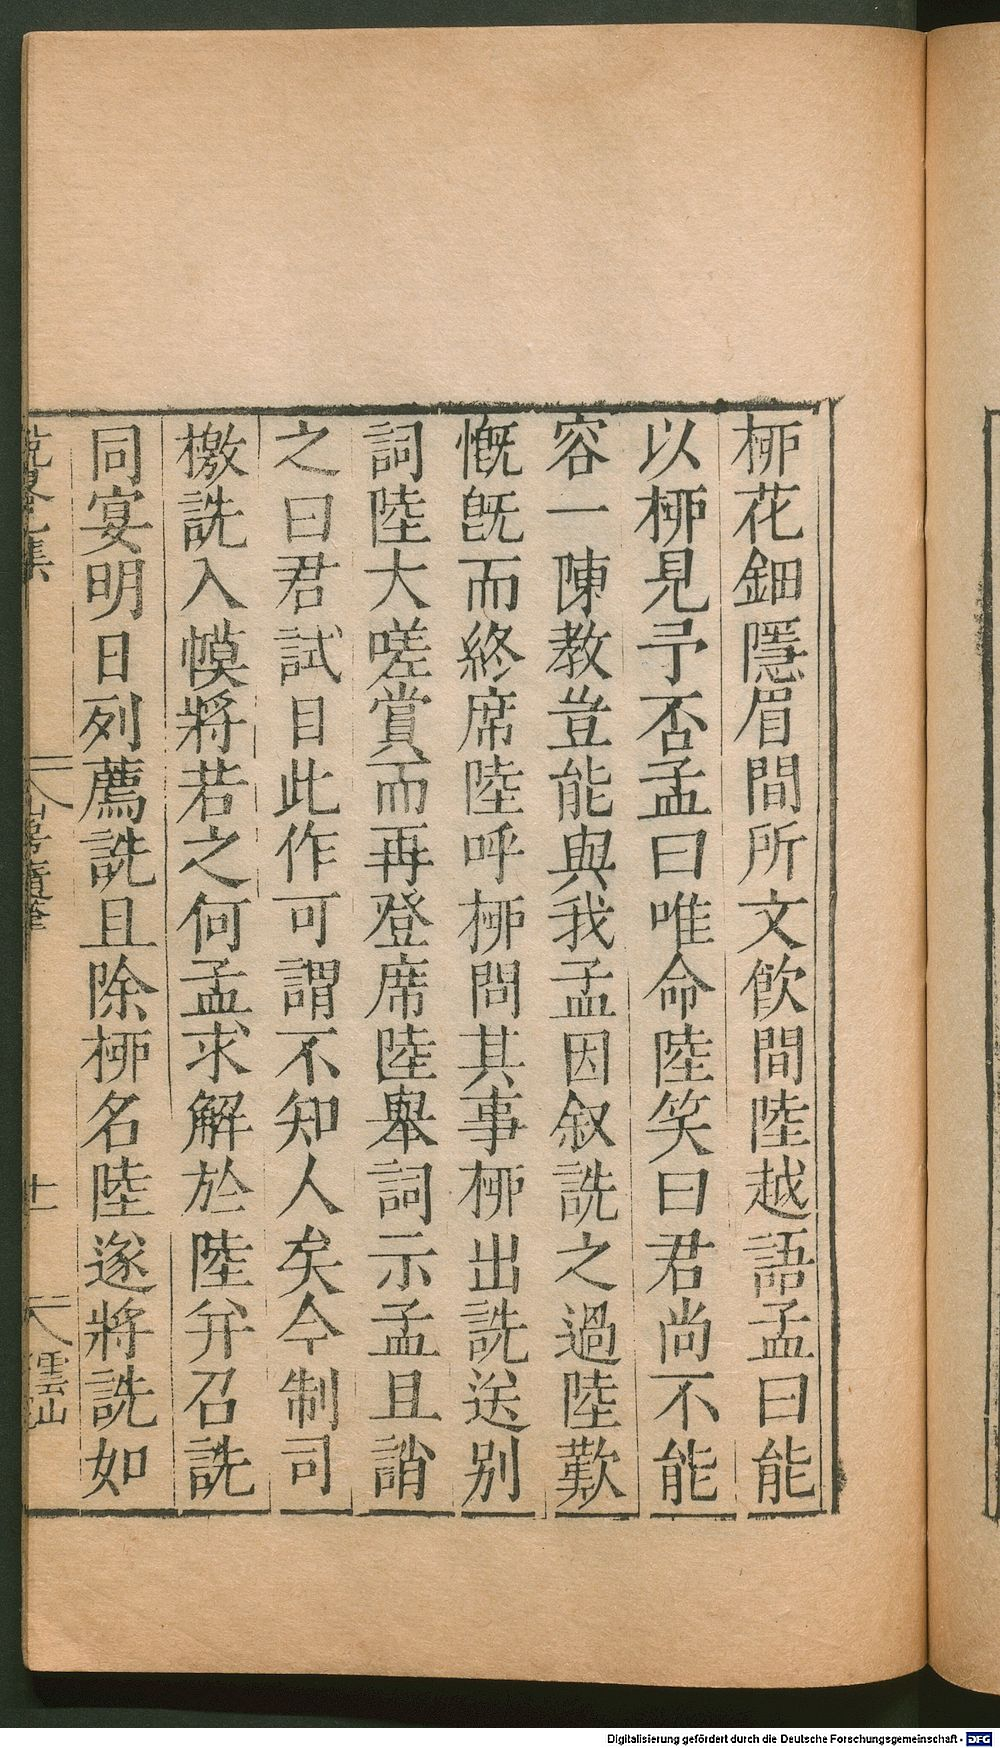 柳花鈿隱眉間所文飲間陸越語孟曰能
以柳見予否孟曰唯命陸笑曰君尚不能
容一陳教豈能與我孟因叙詵之過陸歎
慨旣而終席陸呼柳問其事柳出詵送别
詞陸大嗟賞而再登席陸舉詞示孟且誚
之曰君試目此作可謂不知人矣今制司
檄詵入幙將若之何孟求解於陸弁召詵
同宴明日列薦詵且除柳名陸遂將詵如
十一
Digitalisierung gefördert durch die Deutsche Forschungsgemeinschaft - DFG